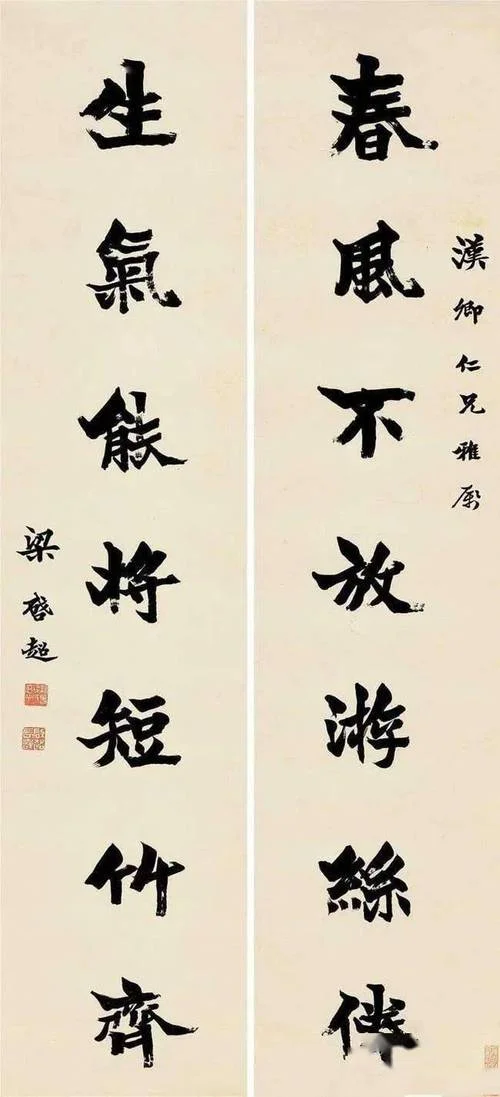 漢卿仁兄雅属
春風不放游絲
生氣能將短竹齊
梁啓超